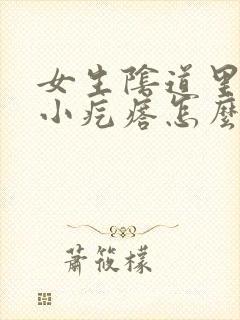 女生陰道里
小疙瘩怎麼
蕭筱檬